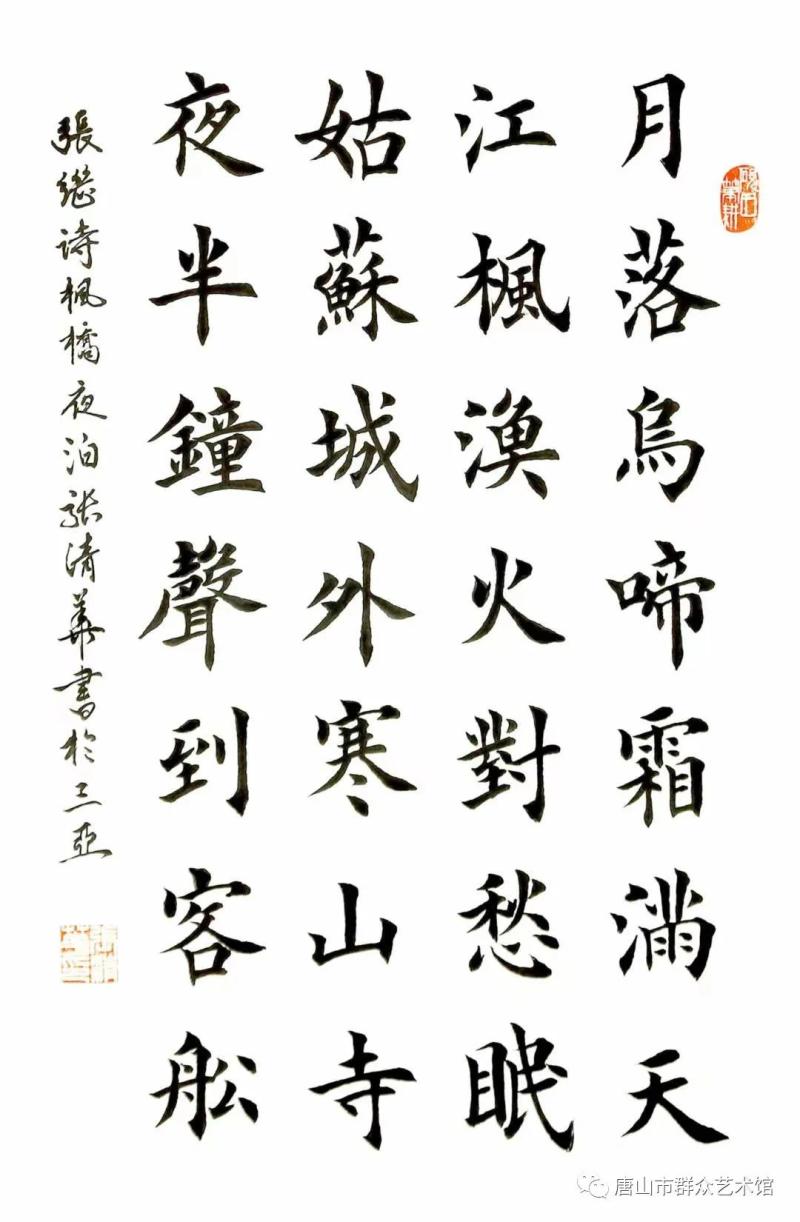 月落烏啼霜滿天
江楓漁火對愁眠
姑蘇城外寒山寺
夜半鐘聲到客舩
張繼诗楓橋夜泊张清華書於三亞
唐山市群众艺术馆